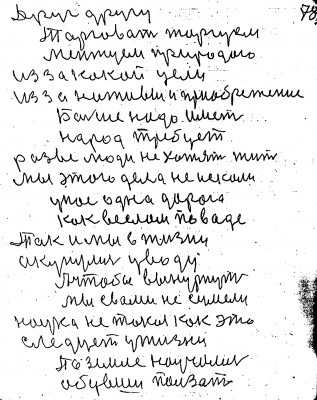 Друг другу 78
Тарговат таргуем
Ментуем природаю
из за какой цели
из за наживы и приобретение
Болше надо имет
народ требует
разве люди не хотят жит
мы этого дела не искали
у нас одна дарога
как веслом по ваде
Так и мы в жизни
акунулис у воду
А чтобы вынурнут
мы с вами не сумели
наука не такая как это
следует у жизни
Па земле научилис
обувши ползат